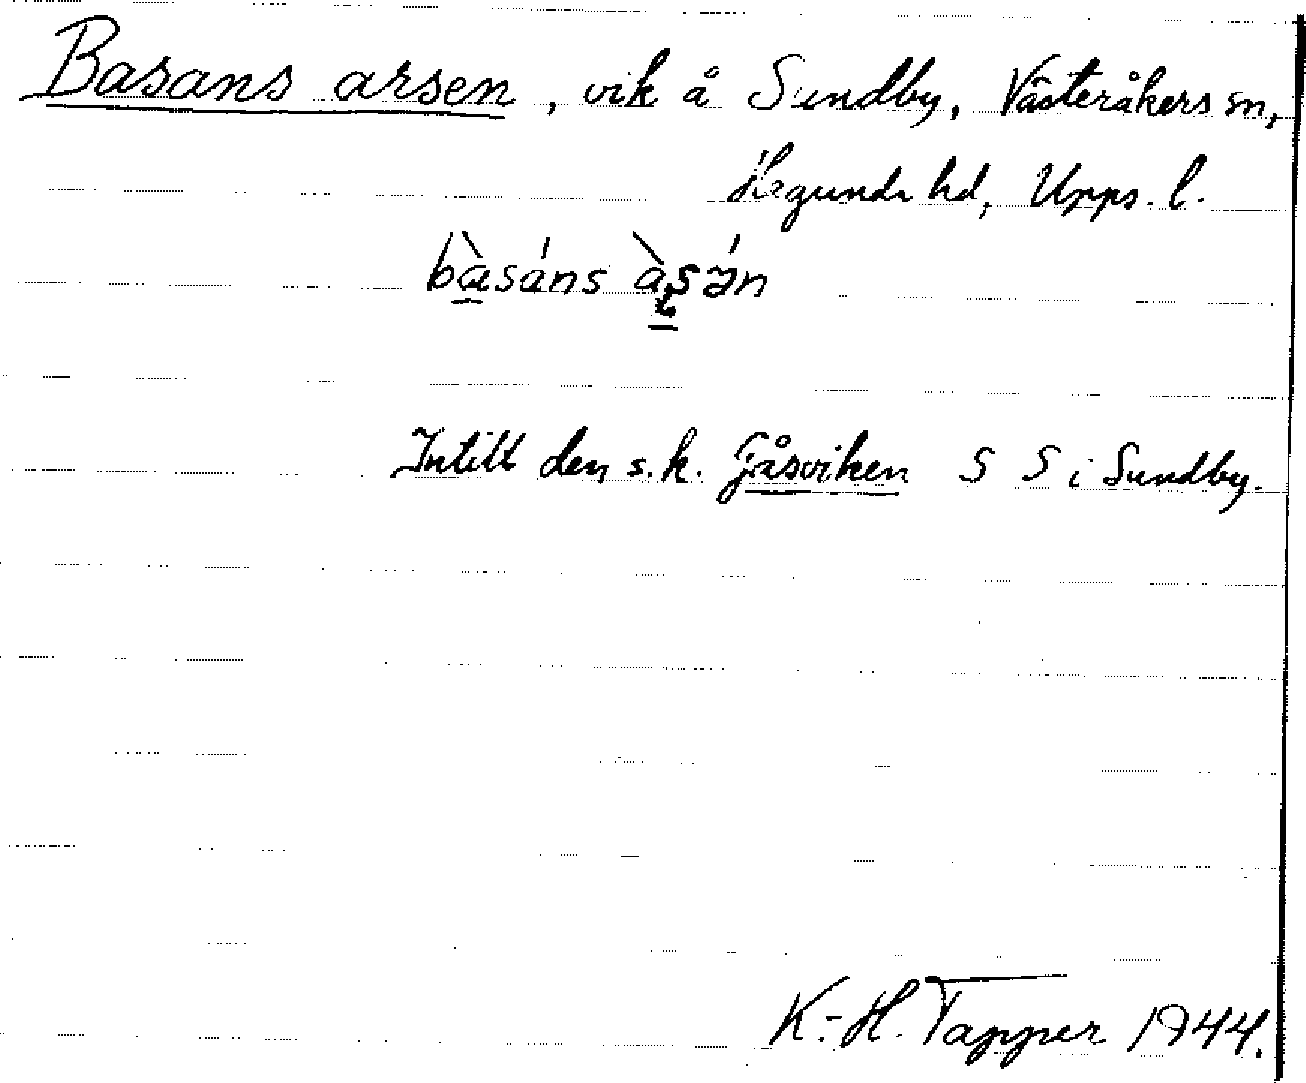 Basans arsen, vik å Sundby, Västeråkers sn,
Hagunda hd, Upps. l.
bàsáns àsə́n
Intill den s.k. Gåsviken S S i Sundby.
K.-H. Tapper 1944.